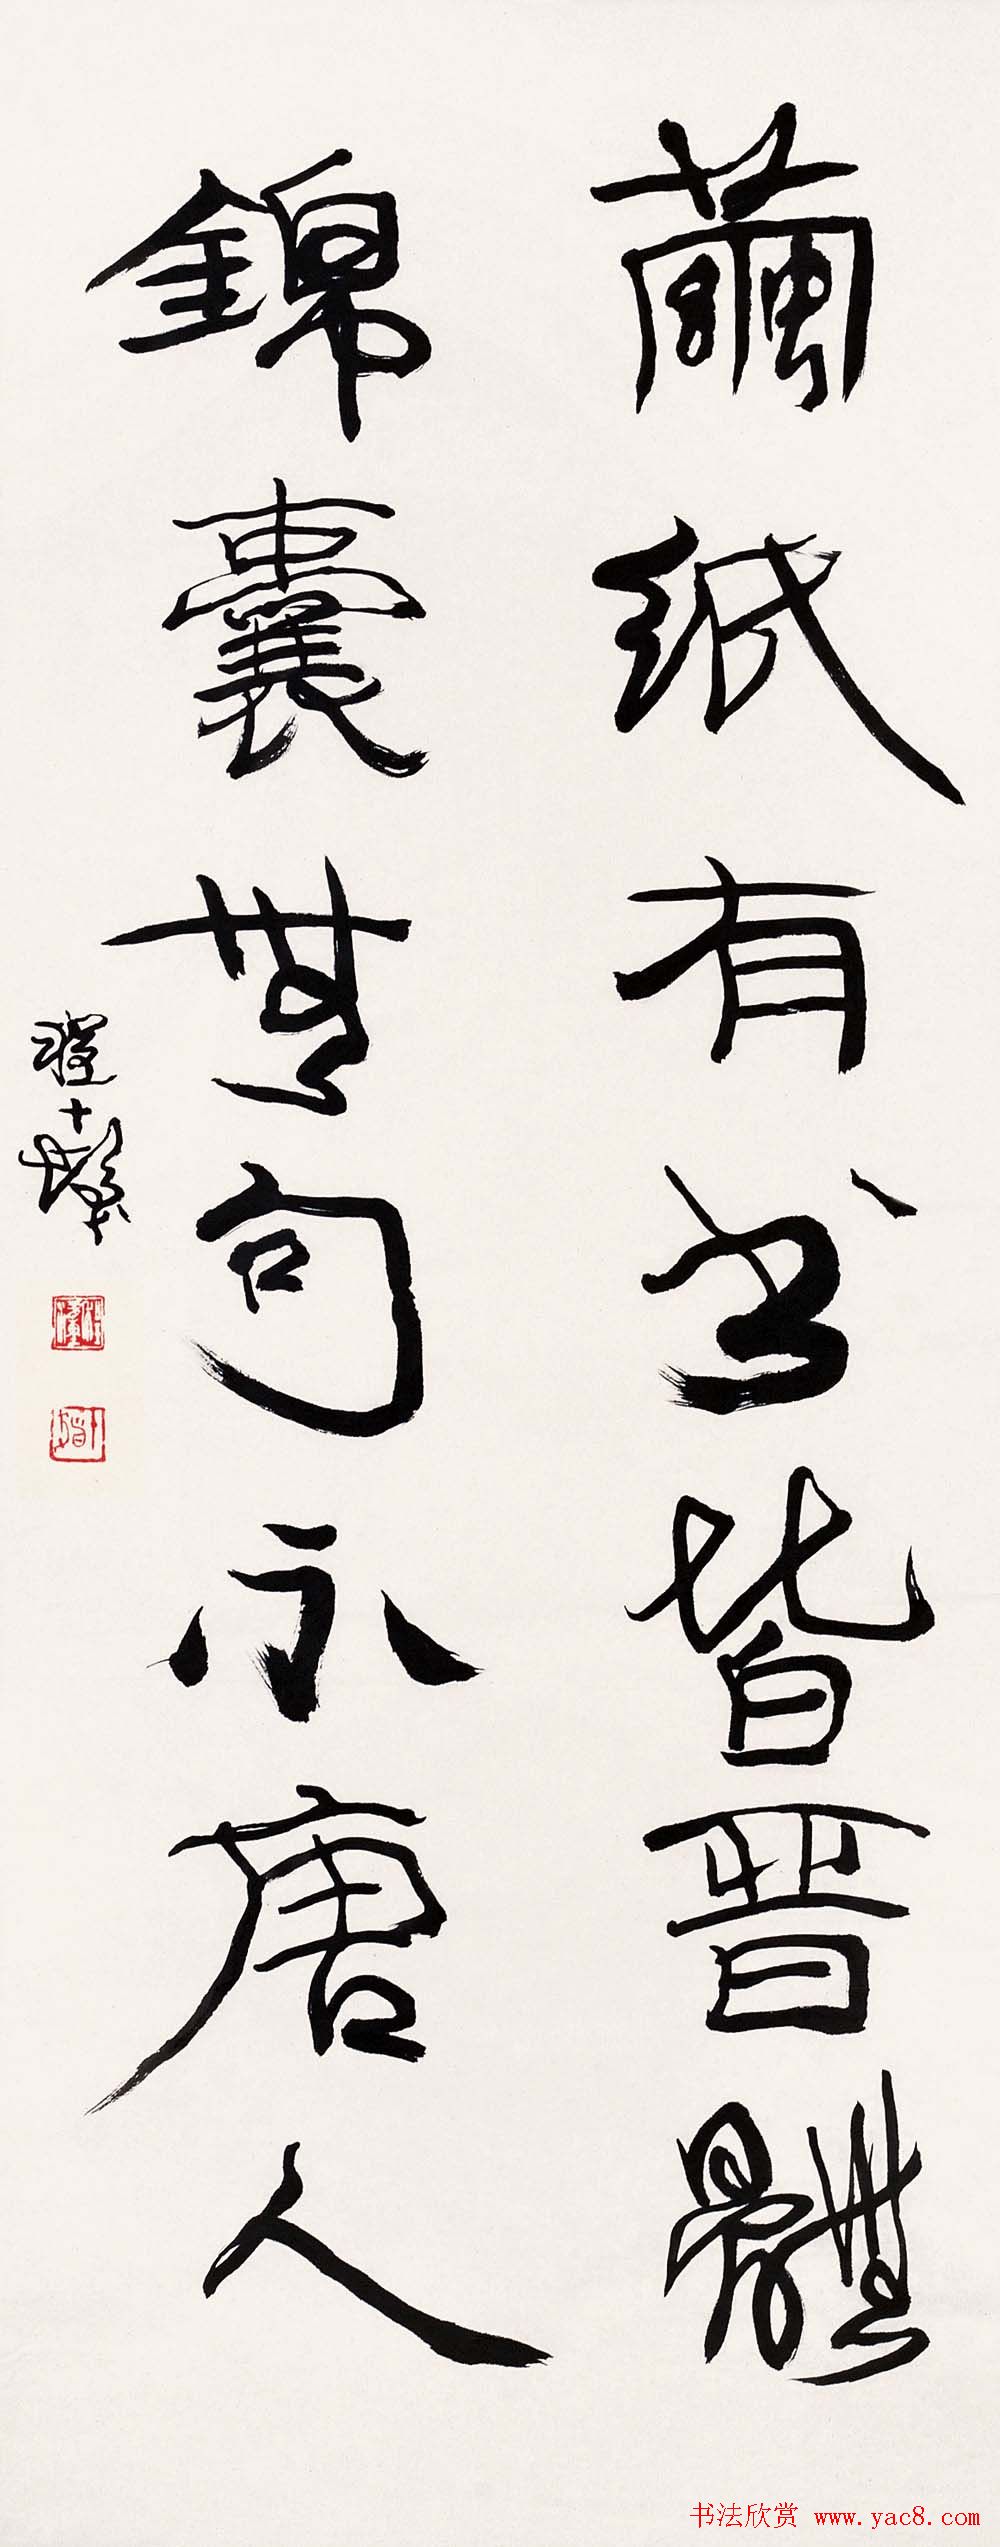 繭紙有书皆晋體
錦囊無句不唐人
书法欣赏 www.yac8.com